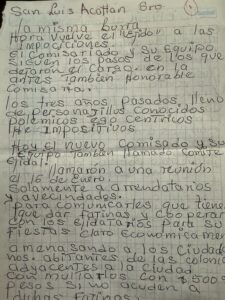 San Luis Acatlan Gro
la misma burra
Hora vuelve el ejido a las
impociciones
el comisariado y su Equipo
siguen los pasos de los que
dejaron el cargo. en la
antes tambien honorable
comisaria.
los tres años, pasados, lleno
de personajillos conocidos
polemicos es centricos
e impositivos
Hoy el nuevo comisado y su
equipo tambien llamado comite
ejidal.
llamaron a una reunion
el 16 de Enero.
solamente a arrendatarios
y avecindados.
para comunicarles que tiene
que dar fatinas, y cooperar
con los ejidatarios para su
fiesta claro economicamente
amenasando a los ciudada
nos. abitantes, de las colonia
adyacentes a la ciudad
con multarlos con $500
pesos si no acuden a
dichas fatinas.